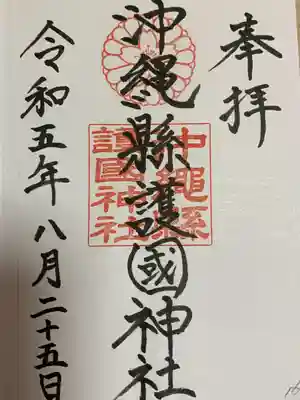 奉拝
沖縄縣護國神社
沖縄縣
護國神社
令和五年八月二十五日